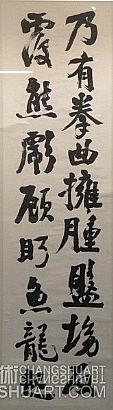 乃有拳曲擁腫盤坳
覆熊彪顧盼魚龍起
CHANGSHUART